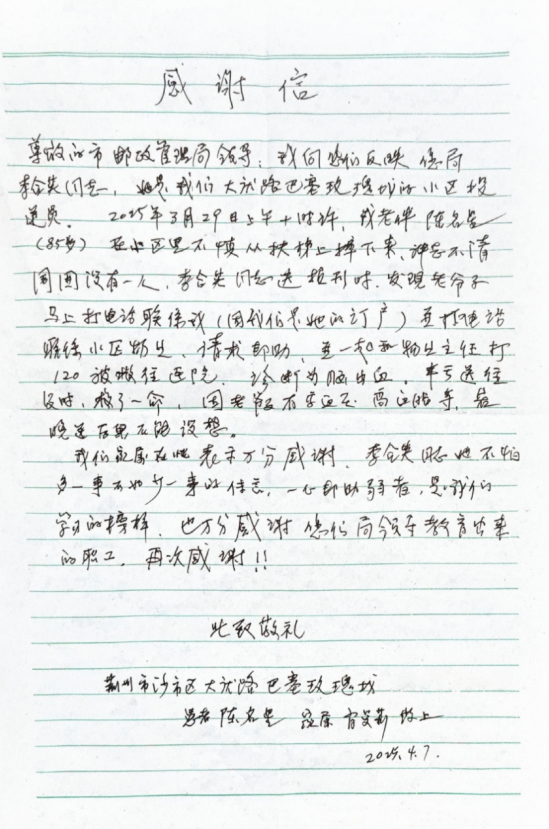 感谢信
尊敬的市邮政管理局领导：我向您们反映您局
李会英同志，她是我们大庆路巴塞玫瑰城的小区投
递员。2025年3月29日上午十时许，我老伴陈名
(85岁)在小区里不慎从扶梯上摔下来，神志不清
周围没有一人，李会英同志送报刊时，发现老爷子
马上打电话联系我(因我们是她的订户)并打电话
联系小区物业，请求帮助，并一起和物业主任打
120被救往医院，诊断为脑出血，幸亏送往
及时，救了一命，因老爷子有高血压高血脂等，若
晚送后果不堪设想。
我们家属在此表示万分感谢，李会英同志她不怕
多一事不如少一事的信念，一心帮助弱者，是我们
学习的榜样，也万分感谢您们局领导教育出来
的职工，再次感谢!!
此致敬礼
荆州市沙市区大庆路巴塞玫瑰城
患者陈名 家属 敬上
2025.4.7.